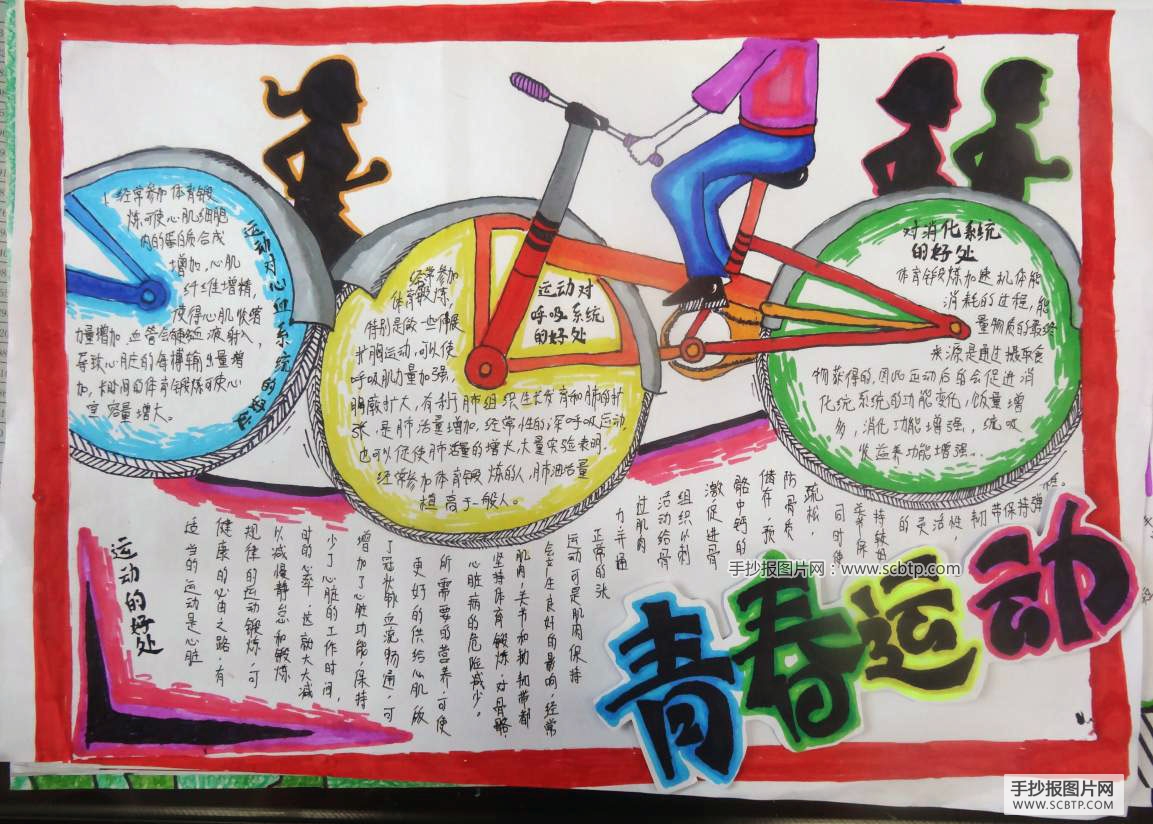 1. 经常参加体育锻
炼可使心肌细胞
内的蛋白质合成
增加,心肌
纤维增精,
使得心肌收缩
力量增加,
导致心脏的每搏输出量增
加,长时间的体育锻炼可使心
室容量增大。
运动对心血系统的好处
经常参加
体育锻炼,
特别是做一些伸展
扩胸运动,可以使
呼吸肌力量加强,
胸廠扩大,有利于肺组织生长发育和肺的扩
张,是肺活量增加,经常性的深呼吸运动,
也可以促使肺活量的增大,大量实验表明,
经常参加体育锻炼的人,肺活量
植高于一般人。
运动对
呼吸系统
的好处
对消化系统
的好处
体育锻炼加速机体能
消耗的过程,能
量物质的最终
来源是通过摄取食
物获得的,因此运动后的会促进消
化统系统的功能变化,饭量增
多,消化功能增强,
运动的好处
适当的运动是心脏
健康的必由之路,有
规律的运动锻炼,可
以减慢静息和锻炼
时的心率,这就大大减
少了心脏的工作时间,
增加了心脏功能,保持
了冠状动血流畅通,可
更好的供给心肌
所需要的营养,可使
心脏病的危险减少。
坚持体育锻炼,对骨骼,
肌肉,关节和韧韧带都
会产生良好的影响,经常
运动可是肌肉保持
正常的张
力并通
过肌肉
活动给骨
组织以刺
激促进骨
骼中钙的
储存,预
防骨质
疏松,
同时使
持较好
的灵活性,韧带保持弹
性。
青春运动
手抄报图片网:www.scbtp.com
手抄报图片网
WWW.SCBTP.COM